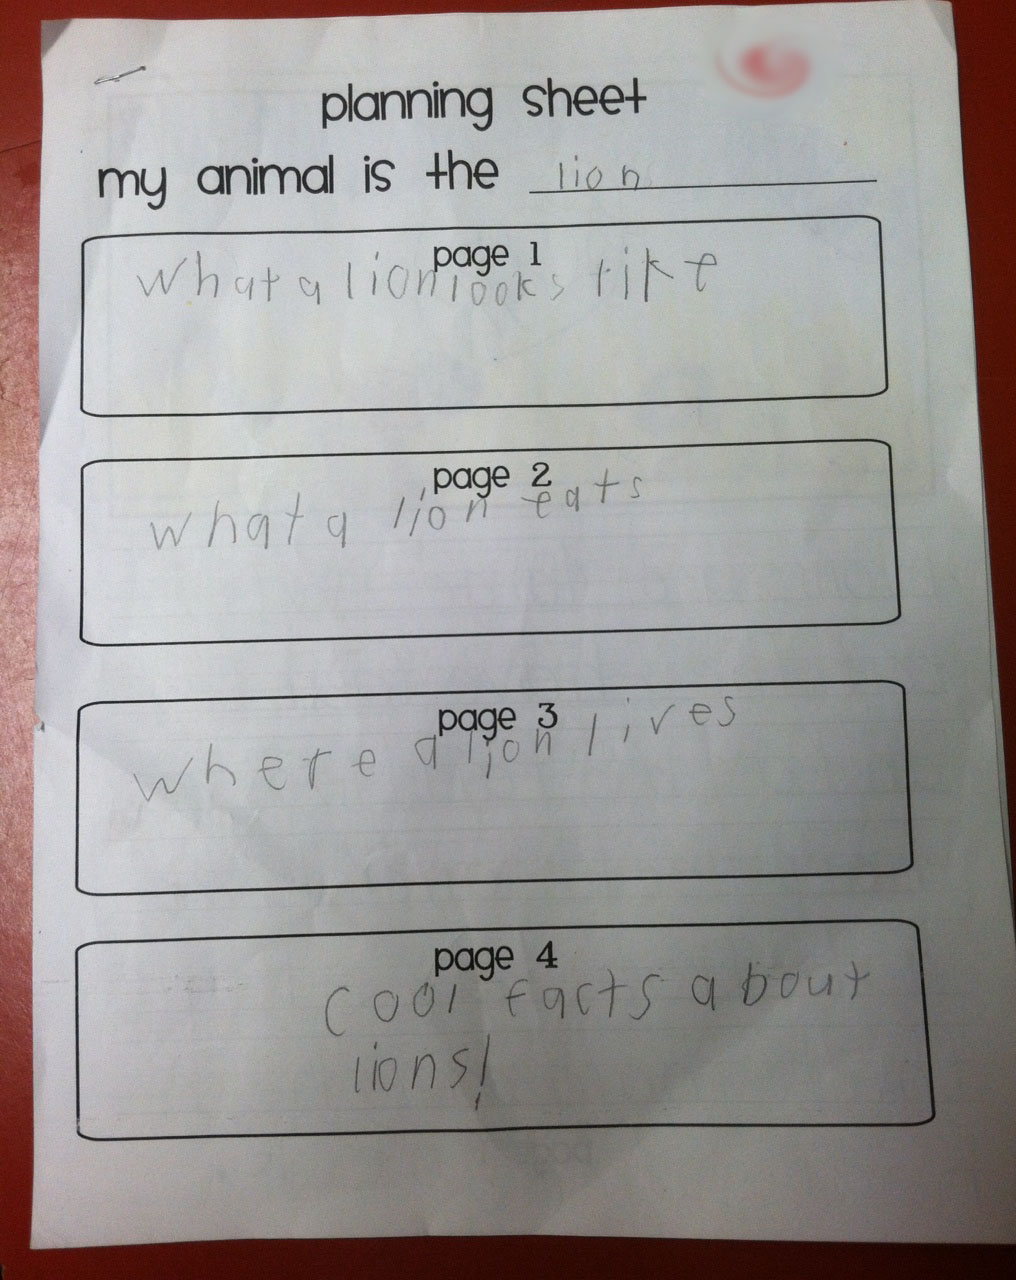 planning sheet
my animal is the lion
page 1
what a lion looks like
page 2
what a lion eats
page 3
where a lion lives
page 4
cool facts about
lions!